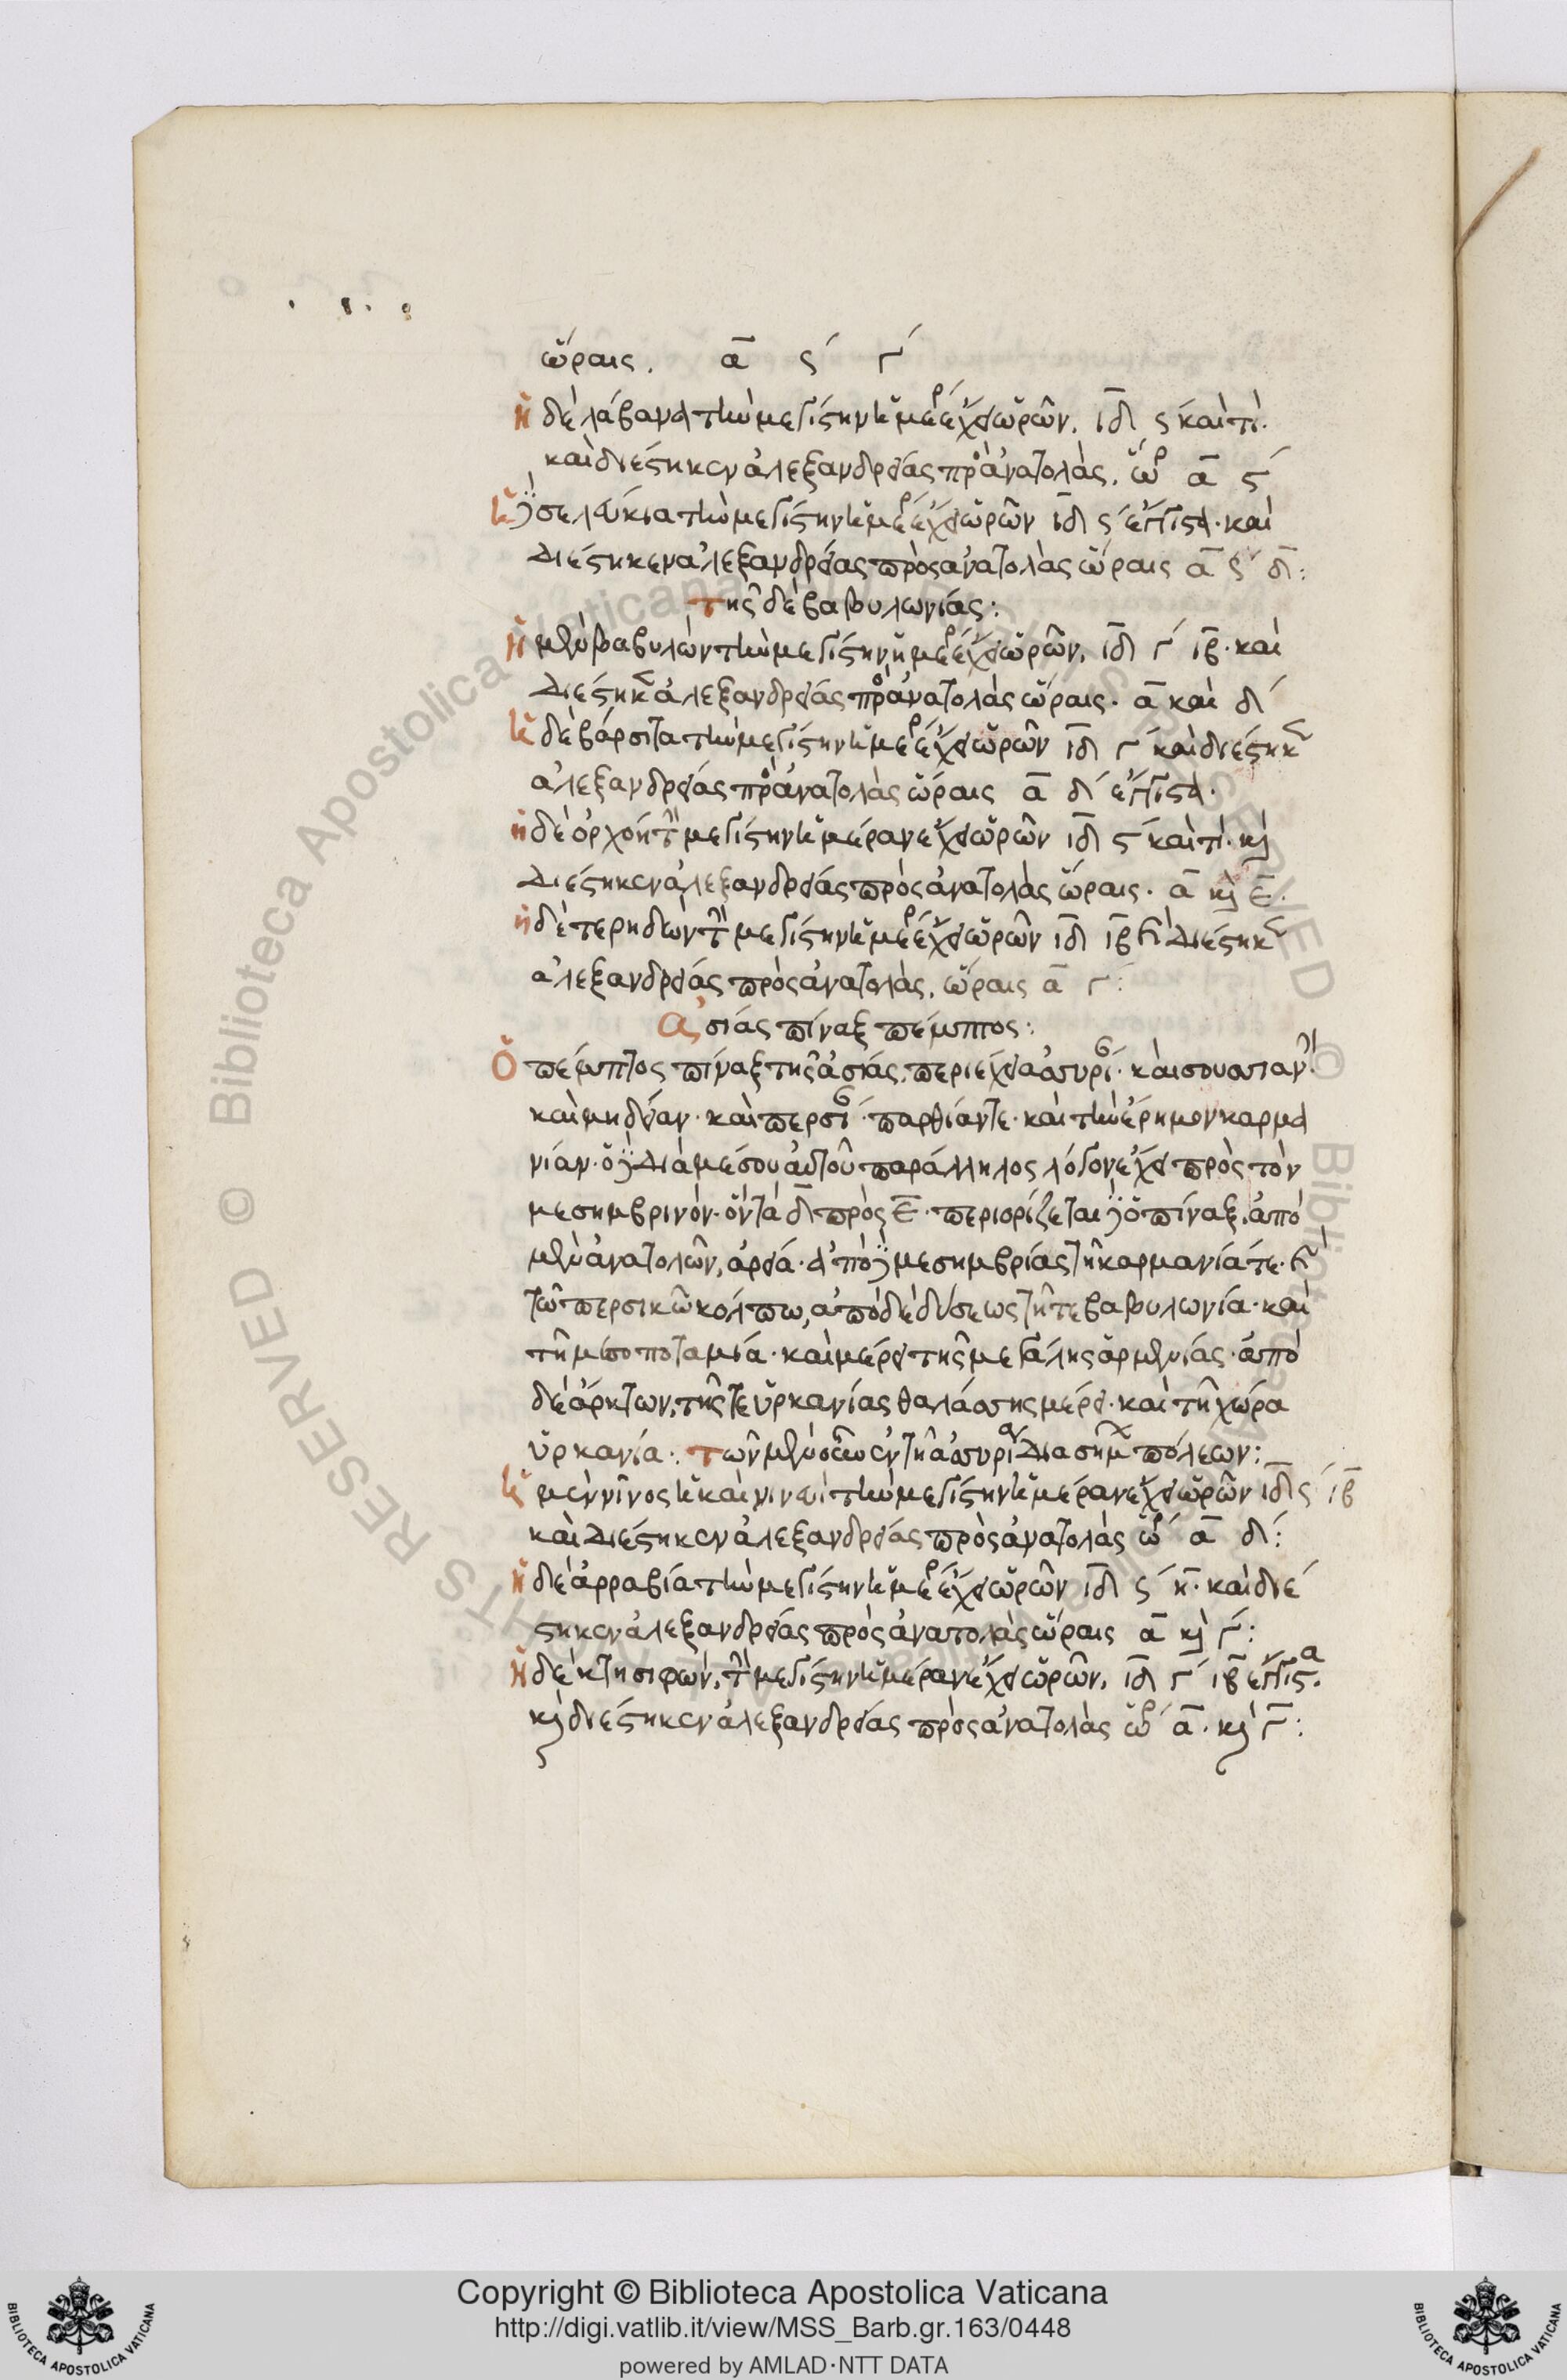 ὥραις. α ϛ΄ γ΄
ἡ δὲ λάβανα τὴν μεγίστην ἡμερ ἔχει ὡρῶν. ιδ ϛ καὶ π.
καὶ διέστηκεν ἀλεξανδρείας πρὸ ἀνατολὰς. ὥρ α ϛ΄
ἡ δὲ σελεύκια τὴν μεγίστην ἡμερ ἔχει ὡρῶν ιδ ϛ΄ ἔγγιστα. καὶ
διέστηκεν ἀλεξανδρείας πρὸς ἀνατολὰς ὥραις α ϛ δ:
τῆς δὲ βαβυλωνίας:
ἡ μὲν βαβυλὼν τὴν μεγίστην ἡμερ ἔχει ὡρῶν. ιδ γ΄ ιβ. καὶ
διέστηκ ἀλεξανδρείας πρὸ ἀνατολὰς ὥραις. α καὶ δ΄
ἡ δὲ βάρσιτα τὴν μεγίστην ἡμερ ἔχει ὡρῶν ιδ γ΄ καὶ διέστηκ
ἀλεξανδρείας πρὸ ἀνατολὰς ὥραις α δ΄ ἔγγιστα.
ἡ δὲ ὀρχόη τ μεγίστην ἡμέραν ἔχει ὡρῶν ιδ ϛ΄ καὶ π. καὶ
διέστηκεν ἀλεξανδρείας πρὸς ἀνατολὰς ὥραις. α καὶ ε.
ἡ δὲ τερηδὼν τ μεγίστην ἡμερ ἔχει ὡρῶν ιδ ιβ καὶ διέστηκ
ἀλεξανδρείας πρὸς ἀνατολὰς. ὥραις α γ:
ἀσίας πίναξ πέμπτος:
Ὁ πέμπτος πίναξ τῆς ἀσίας. περιέχει ἀσσυρί. καὶ σουσιαν
καὶ μηδείαν. καὶ περσί. παρθίαν τε. καὶ τὴν ἔρημον καρμα
νίαν. ὁ δὲ διὰ μέσου αὐτοῦ παράλληλος λόγον ἔχει πρὸς τὸν
μεσημβρινὸν. ὃν τὰ δ πρὸς ε. περιορίζεται δὲ ὁ πίναξ. ἀπὸ
μὲν ἀνατολῶν, ἀρεία. ἀπὸ δὲ μεσημβρίας τῆ καρμανία τε. καὶ
τῶ περσικῶ κόλπω, ἀπὸ δὲ δύσεως τῆ τε βαβυλωνία. καὶ
τῆ μεσοποταμία. καὶ μέρει τῆς μεγάλης ἀρμενίας. ἀπὸ
δὲ ἄρκτων, τῆς τε ὑρκανίας θαλάσσης μέρει. καὶ τῆ χώρα
ὑρκανία. τῶν μὲν οὖν ἐν τῆ ἀσσυρία διασήμ πόλεων:
ἡ μὲν νῖνος ἡ καὶ νινευὶ τὴν μεγίστην ἡμέραν ἔχει ὡρῶν ιδ ϛ΄ ιβ
καὶ διέστηκεν ἀλεξανδρείας πρὸς ἀνατολὰς ὥρ α δ:
ἡ δὲ ἀρραβία τὴν μεγίστην ἡμερ ἔχει ὡρῶν ιδ ϛ΄ η. καὶ διέ
στηκεν ἀλεξανδρείας πρὸς ἀνατολὰς ὥραις α καὶ γ:
ἡ δὲ κτησιφών, τ μεγίστην ἡμέραν ἔχει ὡρῶν, ιδ γ΄ ιβ ἔγγιστα.
καὶ διέστηκεν ἀλεξανδρείας πρὸς ἀνατολὰς ὥρ α. καὶ γ:
© Biblioteca Apostolica Vaticana
Copyright © Biblioteca Apostolica Vaticana
http://digi.vatlib.it/view/MSS_Barb.gr.163/0448
powered by AMLAD·NTT DATA
BIBLIOTECA APOSTOLICA VATICANA
BIBLIOTECA APOSTOLICA VATICANA